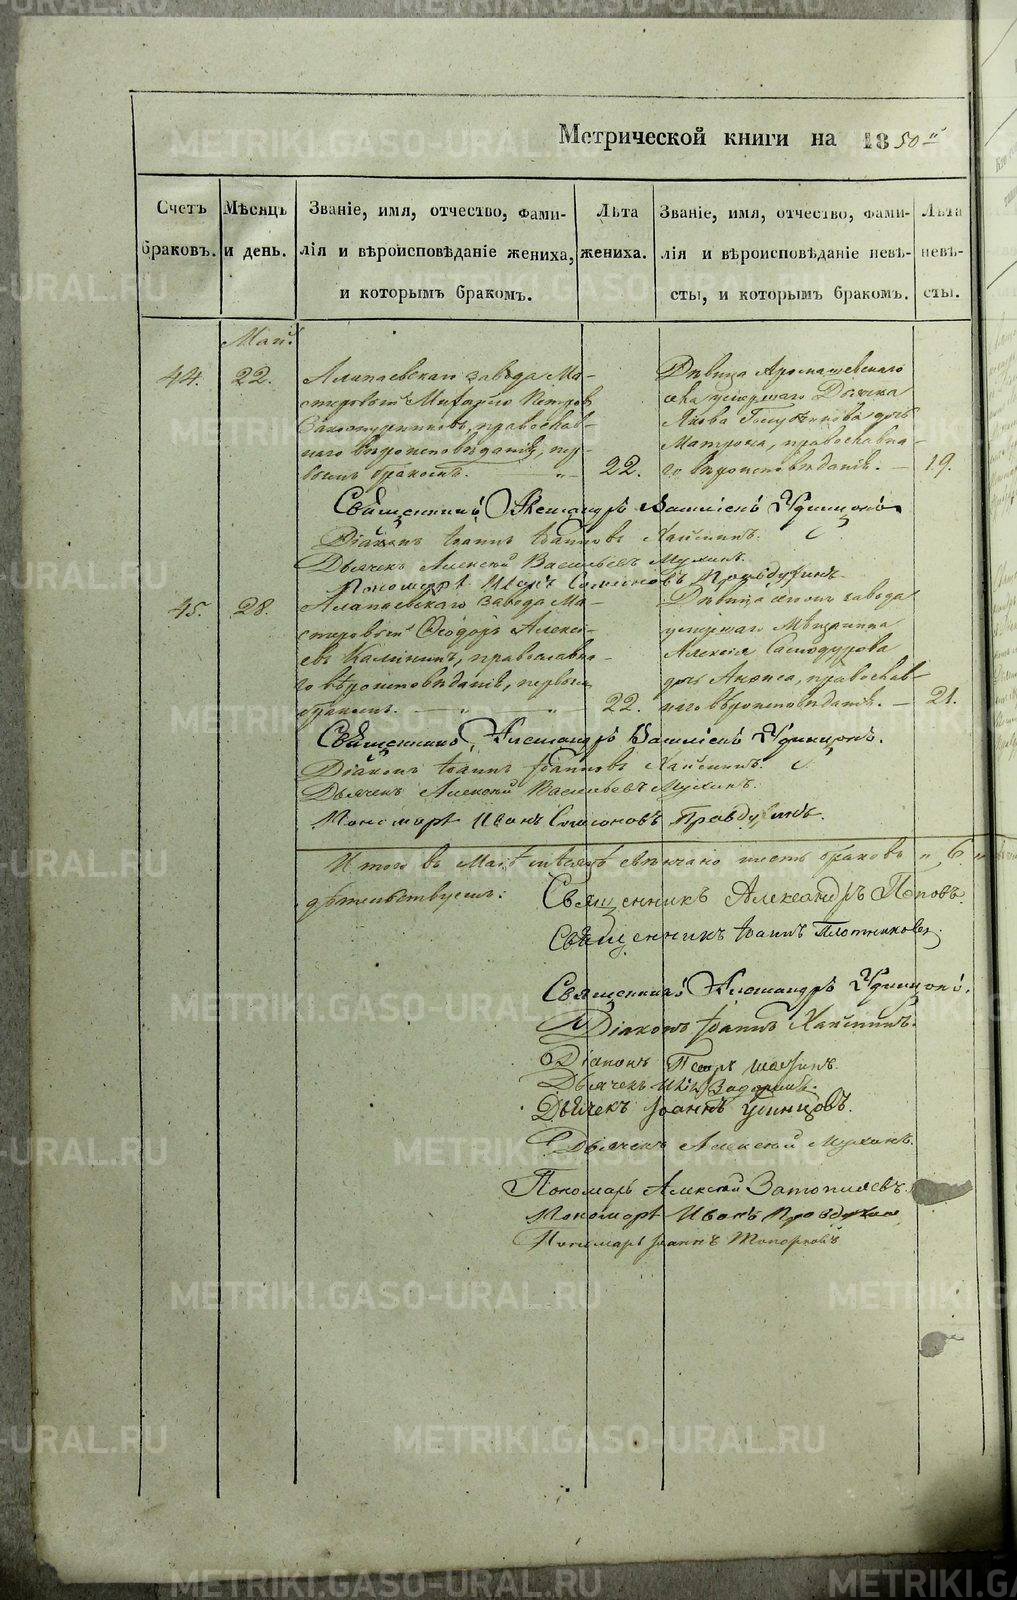 Метрической книги на 1850й
Счетъ браковъ.
Мѣсяцъ и день.
Званіе, имя, отчество, фами-
лія и вѣроисповѣданіе жениха,
и которымъ бракомъ.
Лѣта жениха.
Званіе, имя, отчество, фами-
лія и вѣроисповѣданіе невѣ-
сты, и которымъ бракомъ.
Лѣта невѣ-
сты.
Май.
44.
22.
Алапаевскаго завода Ма-
стеровый Михайло Петровъ
православ-
наго вѣроисповѣданія, пер-
вымъ бракомъ.
22.
Дѣвица Аромашевскаго
села умершаго Дьячка
Якова дочь
Матрона, православна-
го вѣроисповѣданія.
19.
Священникъ Александръ Удинцовъ
Діаконъ Іоаннъ Іоанновъ
Дьячекъ Алексѣй Васильевъ Мухинъ.
Пономарь Иванъ Симеоновъ Правдухинъ.
45.
28.
Алапаевскаго завода Ма-
стеровый Ѳеодоръ Алексѣ-
евъ Калининъ, православна-
го вѣроисповѣданія, первымъ
бракомъ.
22.
Дѣвица завода
умершаго
Алексѣя Самодурова
дочь Аниса, православ-
наго вѣроисповѣданія.
21.
Священникъ Александръ Удинцовъ.
Діаконъ Іоаннъ Іоанновъ
Дьячекъ Алексѣй Васильевъ Мухинъ.
Пономарь Иванъ Симеоновъ Правдухинъ.
Итого въ Маѣ мѣсяцѣ свѣнчано шесть браковъ „ 6 „
дѣтельствуемъ:
Священникъ Александръ Поповъ.
Священникъ Іоаннъ Плотниковъ.
Священникъ Александръ Удинцовъ.
Діаконъ Іоаннъ
Діаконъ Петръ
Дьячекъ
Дьячекъ Іоаннъ Удинцовъ.
Дьячекъ Алексѣй Мухинъ.
Пономарь Алексѣй Затопляевъ.
Пономарь Иванъ Правдухинъ
Пономарь Іоаннъ Топорковъ
METRIKI.GASO-URAL.RU